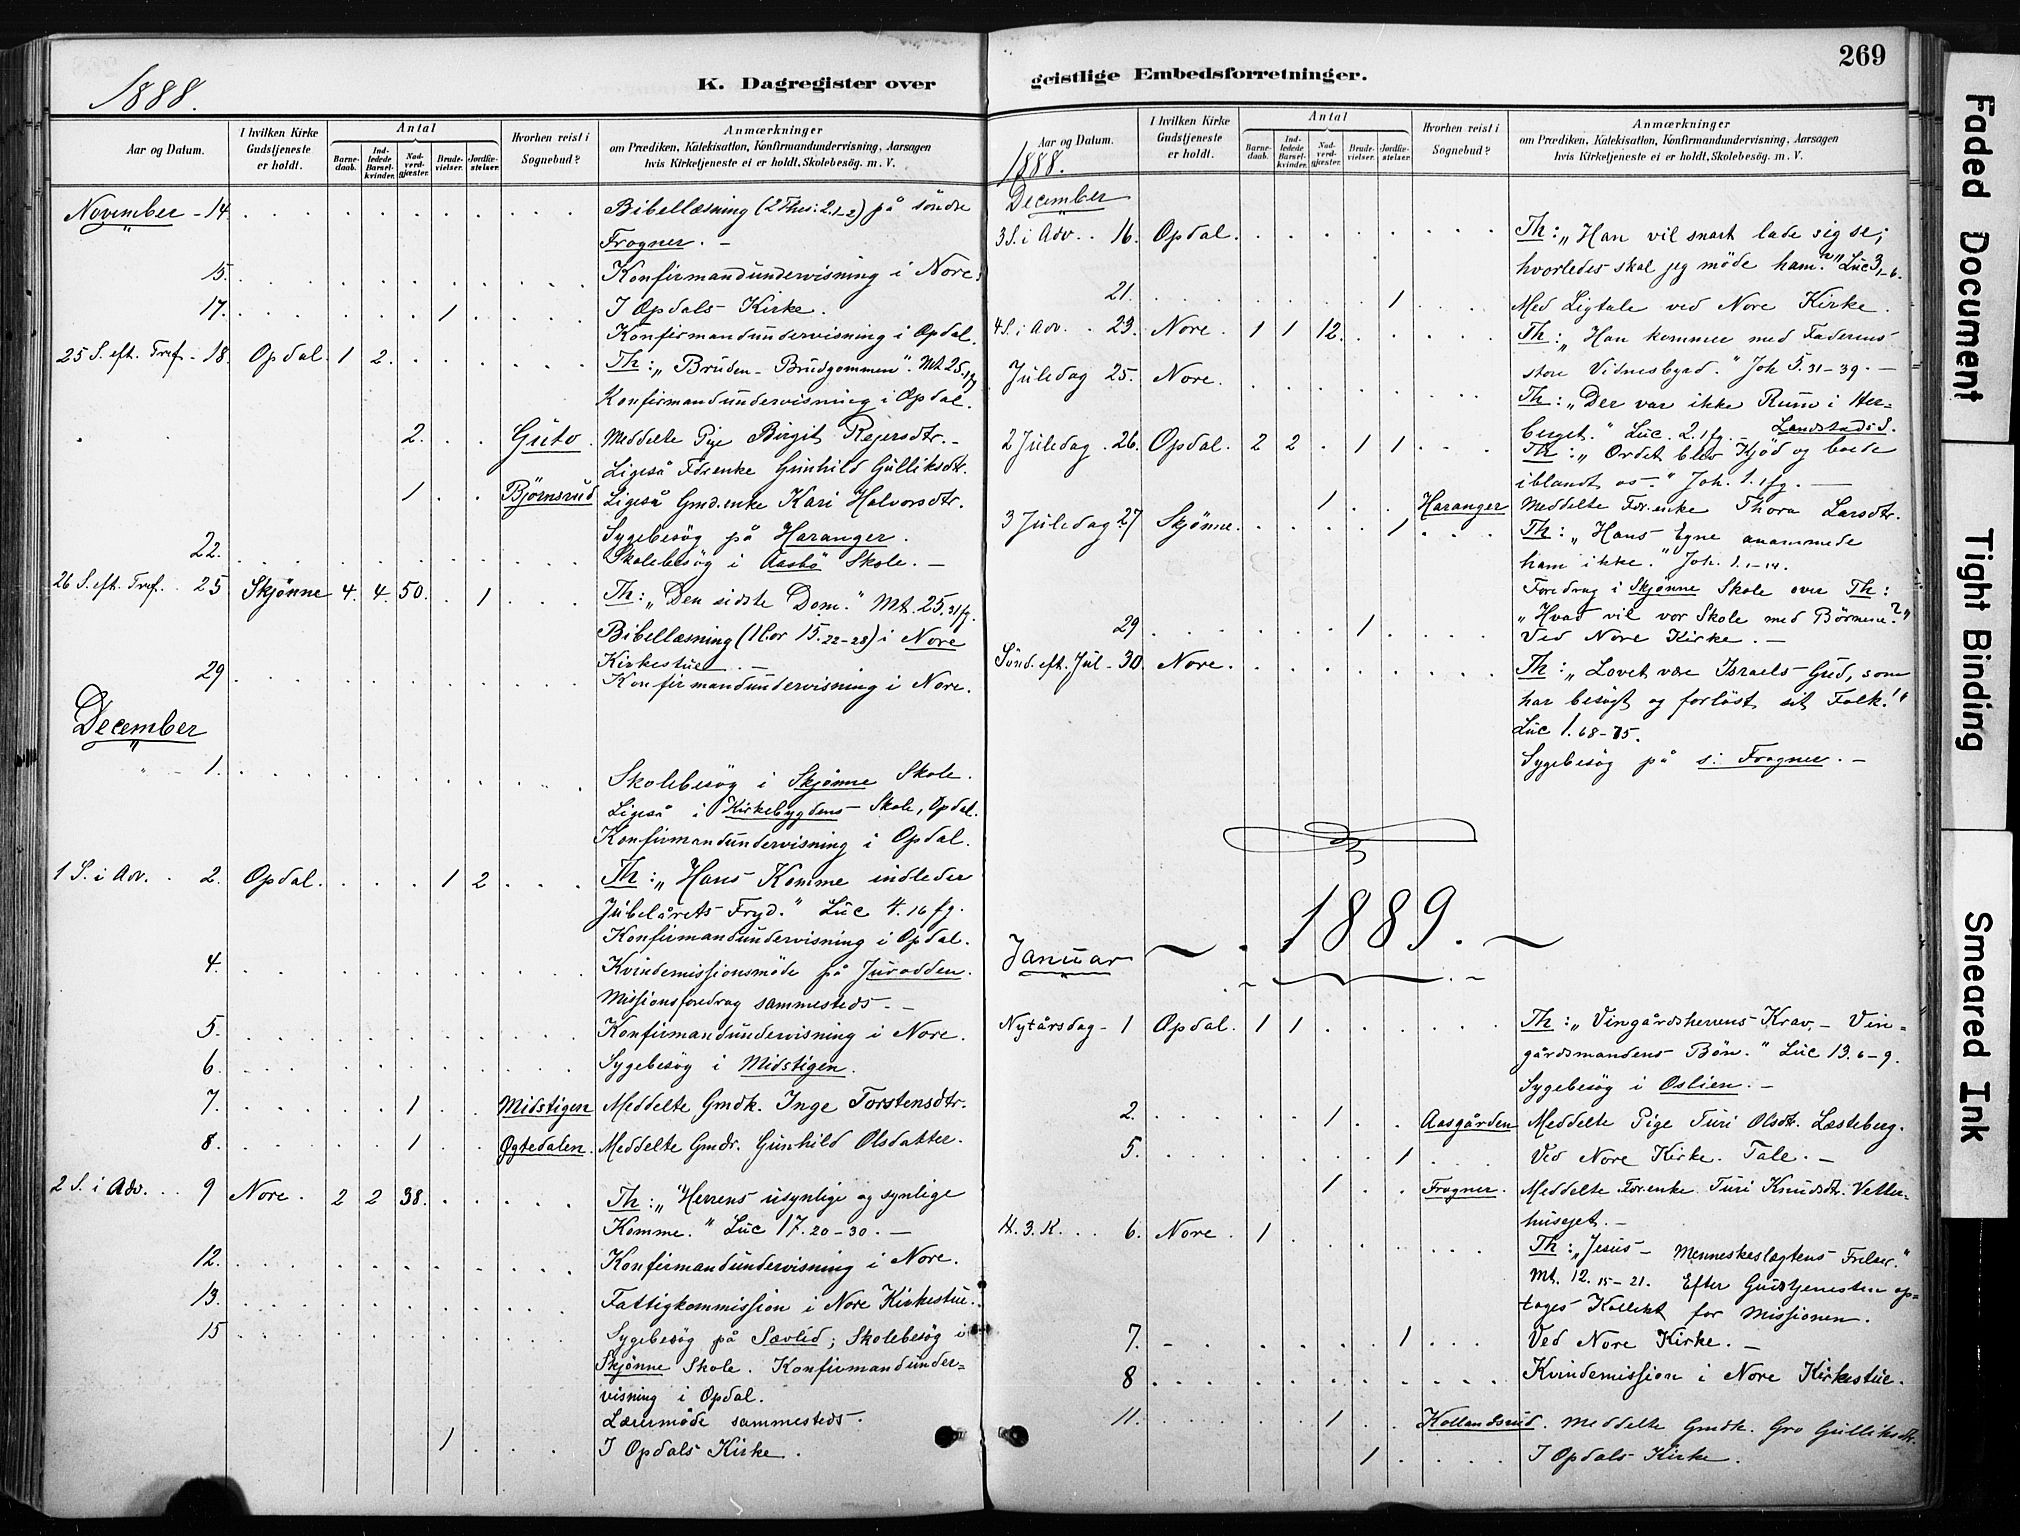 1888.
K. Dagregister over
Aar og Datum.
I hvilken Kirke Gudstjeneste er holdt.
Antal
Barne-daab.
Ind-ledede Barsel-kvinder.
Nad-verd-gjæster.
Brude-vielser.
Jordfæ-stelser.
Hvorhen reist i Sognebud?
Anmærkninger
om Prædiken, Katekisation, Konfirmandundervisning, Aarsagen
hvis Kirketjeneste ei er holdt, Skolebesög. m. V.
November - 14 Bibellæsning (2 Thes: 2.1-2) på söndre
Frogner. -
15. Konfirmandundervisning i Nore.
17. 1 I Opdals Kirke.
Konfirmandundervisning i Opdal.
25 S. eft. Tref. 18. Opdal. 1 2. Th: „Bruden - Brudgommen". Mt 25.1 fg
Konfirmandundervisning i Opdal.
2. Guto. Meddelte Pige Birgit Rejersdtr. -
Ligeså Fdrenke Gunhild Gulliksdtr.
1 Björnsrud Ligeså Gmd.enke Kari Halvorsdtr.
Sygebesög på Haranger.
22. Skolebesög i Aasbö Skole. -
26 S. eft. Tref. 25 Skjönne 4. 4. 50. 1 Th: „Den sidste Dom." Mt. 25.31 fg.
Bibellæsning (1 Cor 15.22-28) i Nore
Kirkestue. -
29 Konfirmandundervisning i Nore.
December
1. Skolebesög i Skjönne Skole.
Ligeså i Kirkebygdens Skole, Opdal.
Konfirmandundervisning i Opdal.
1 S. i Adv. 2. Opdal. 1 2 Th: „Hans Komme indleder
Jubelårets Fryd." Luc 4.16 fg.
Konfirmandundervisning i Opdal.
4. Kvindemissionsmöde på Juvodden.
Missionsforedrag sammesteds. -
5. Konfirmandundervisning i Nore.
6. Sygebesög i Midstigen.
7. 1 Midstigen Meddelte Gmdk. Inge Torstensdtr.
8. 1 Ögtedalen. Meddelte Gmdr. Gunhild Olsdatter.
2 S. i Adv. 9 Nore. 2 2 38. Th: „Herrens usynlige og synlige
Komme." Luc 17.20-30. -
12. Konfirmandundervisning i Nore.
13. Fattigkommission i Nore Kirkestue.
15 Sygebesög på Sævlid; Skolebesög i
Skjönne Skole. Konfirmandunder-
visning i Opdal.
Lærermöde sammesteds.
1 I Opdals Kirke.
geistlige Embedsforretninger.
269
Aar og Datum.
I hvilken Kirke Gudstjeneste er holdt.
Antal
Barne-daab.
Ind-ledede Barsel-kvinder.
Nad-verd-gjæster.
Brude-vielser.
Jordfæ-stelser.
Hvorhen reist i Sognebud?
Anmærkninger
om Prædiken, Katekisation, Konfirmandundervisning, Aarsagen
hvis Kirketjeneste ei er holdt, Skolebesög. m. V.
1888.
December
3 S. i Adv. 16. Opdal. Th: „Han vil snart lade sig se;
hvorledes skal jeg möde ham?" Luc 3.1-6.
21. 1 Med Ligtale ved Nore Kirke.
4 S. i Adv. 23. Nore. 1 1 12. Th: „Han kommer med Faderens
store Vidnesbyrd." Joh 5.31-39. -
Juledag 25. Nore. Th: „Der var ikke Rum i Her-
berget." Luc. 2.1 fg. - Landstads S.
2 Juledag 26. Opdal. 2 2 1 1 Th: „Ordet blev Kjöd og boede
iblandt os." Joh. 1.1 fg. -
1 Haranger Meddelte Fdr.enke Thora Larsdtr.
3 Juledag 27 Skjönne. 1 Th: „Hans Egne anammede
ham ikke." Joh. 1.1-14.
Foredrag i Skjönne Skole over Th:
„Hvad vil vor Skole med Börnene?"
29 1 Ved Nore Kirke. -
Sönd. eft. Jul - 30. Nore. Th: „Lovet være Israels Gud, som
har besögt og forlöst sit Folk!"
Luc 1.68-75.
Sygebesög på s: Frogner. -
1889.
Januar
Nytårsdag - 1 Opdal. 1 1 Th: „Vingårdsherrens Krav, - Vin-
gårdsmandens Bön." Luc 13.6-9.
Sygebesög i Oslien. -
2. 1 Aasgården Meddelte Pige Turi Olsdtr. Læsteberg.
5. 1 Ved Nore Kirke. Tale. -
1 Frogner. Meddelte Fdr.enke Turi Knudsdtr. Vetter-
huseget. -
H. 3. K. 6. Nore. 1 Th: „Jesus - Menneskeslægtens Frelser."
Mt. 12.15-21. Efter Gudstjenesten op-
toges Kollekt for Missionen.
7. 1 Ved Nore Kirke. -
8 Kvindemission i Nore Kirkestue.
11. 1 Kollandsrud. Meddelte Gmdk. Gro Gulliksdtr.
1 I Opdals Kirke.
Faded Document
Tight Binding
Smeared Ink